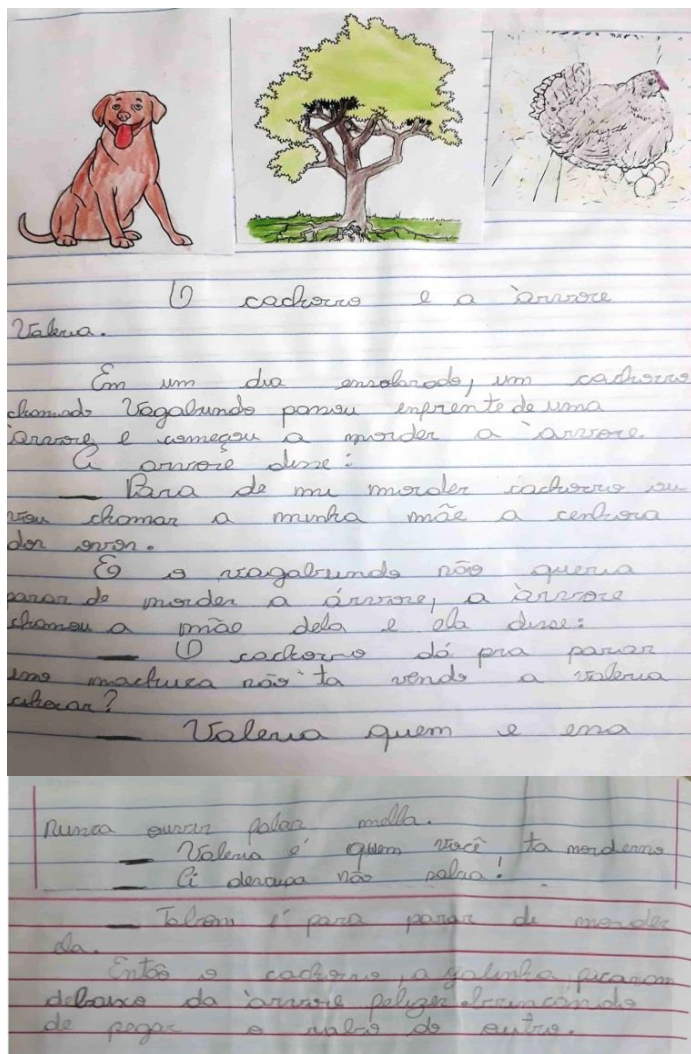 O cachorro e a àrvore
Valeria.
Em um dia ensolarado, um cachorro
chamado Vagabundo passou enfrente de uma
àrvore e começou a morder a àrvore.
A arvore disse:
— Para de mi morder cachorro ou
vou chamar a minha mãe a cenhora
dos ovos.
E o vagabundo não queria
parar de morder a árvore, a àrvore
chamou a mãe dela e ela disse:
— O cachorro dá pra parar
isso machuca não ta vendo a Valeria
chorar?
— Valeria quem e essa
nunca ouvir falar nella.
— Valeria é quem você ta mordenno
— Ai descupa não sabia!
— Tabom é para parar de morder
ela.
Entõo o cachorro, a galinha ficaram
debaixo da àrvore felizes brincando
de pegar o rabo do outro.